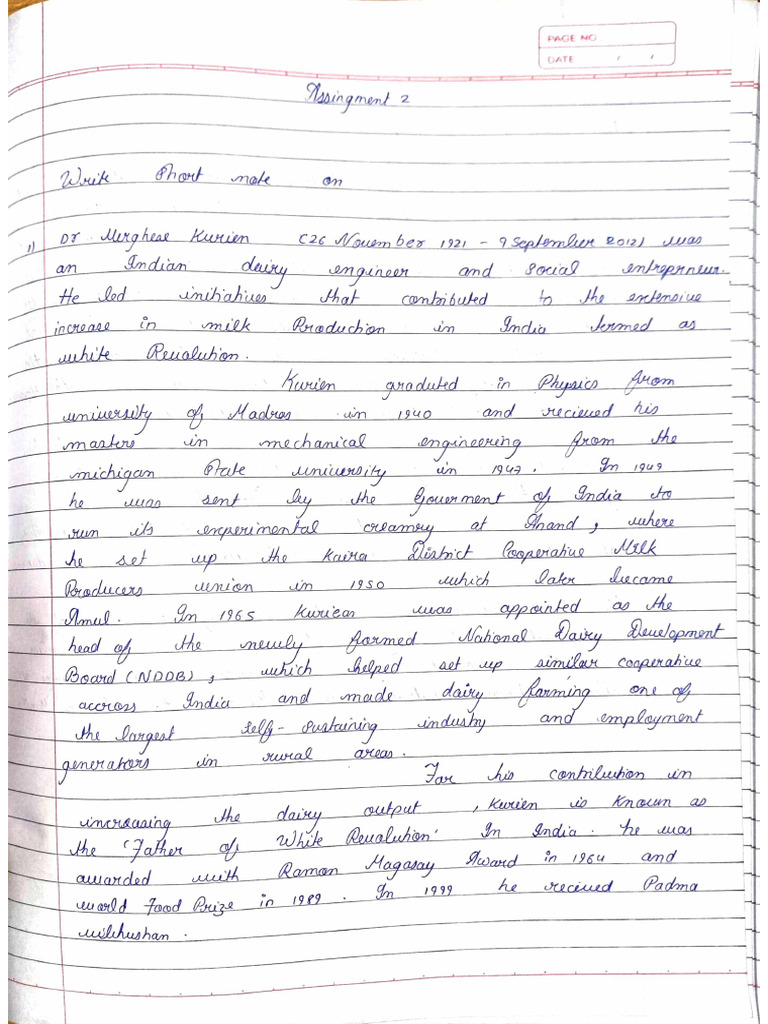 PAGE NO
DATE / /
Assingment 2
Write Short note on
1) Dr Merghese Kurien (26 November 1921 - 9 September 2012) was
an Indian dairy engineer and social entreprneur.
He led initiatives that contributed to the extensive
increase in milk Production in India termed as
white Revalution.
Kurien graduted in Physics from
university of Madras in 1940 and recieved his
masters in mechanical engineering from the
michigan State university in 1947. In 1949
he was sent by the Goverment of India to
run its experimental creamry at Anand, where
he set up the Kaira District Cooperative Milk
Producers union in 1950 which later became
Amul. In 1965 Kurien was appointed as the
head of the newly formed National Dairy Development
Board (NDDB), which helped set up similar cooperative
accross India and made dairy farming one of
the largest self-sustaining industry and employment
generators in rural areas.
For his contribution in
increasing the dairy output, Kurien is known as
the 'Father of White Revalution' In India. he was
awarded with Ramon Magasay Award in 1964 and
world Food Prize in 1989. In 1999 he recieved Padma
vibhushan.